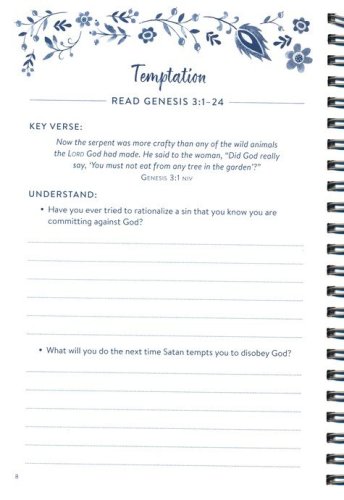 Temptation
READ GENESIS 3:1–24
KEY VERSE:
Now the serpent was more crafty than any of the wild animals
the LORD God had made. He said to the woman, “Did God really
say, ‘You must not eat from any tree in the garden’?”
GENESIS 3:1 NIV
UNDERSTAND:
• Have you ever tried to rationalize a sin that you know you are
committing against God?
• What will you do the next time Satan tempts you to disobey God?
8